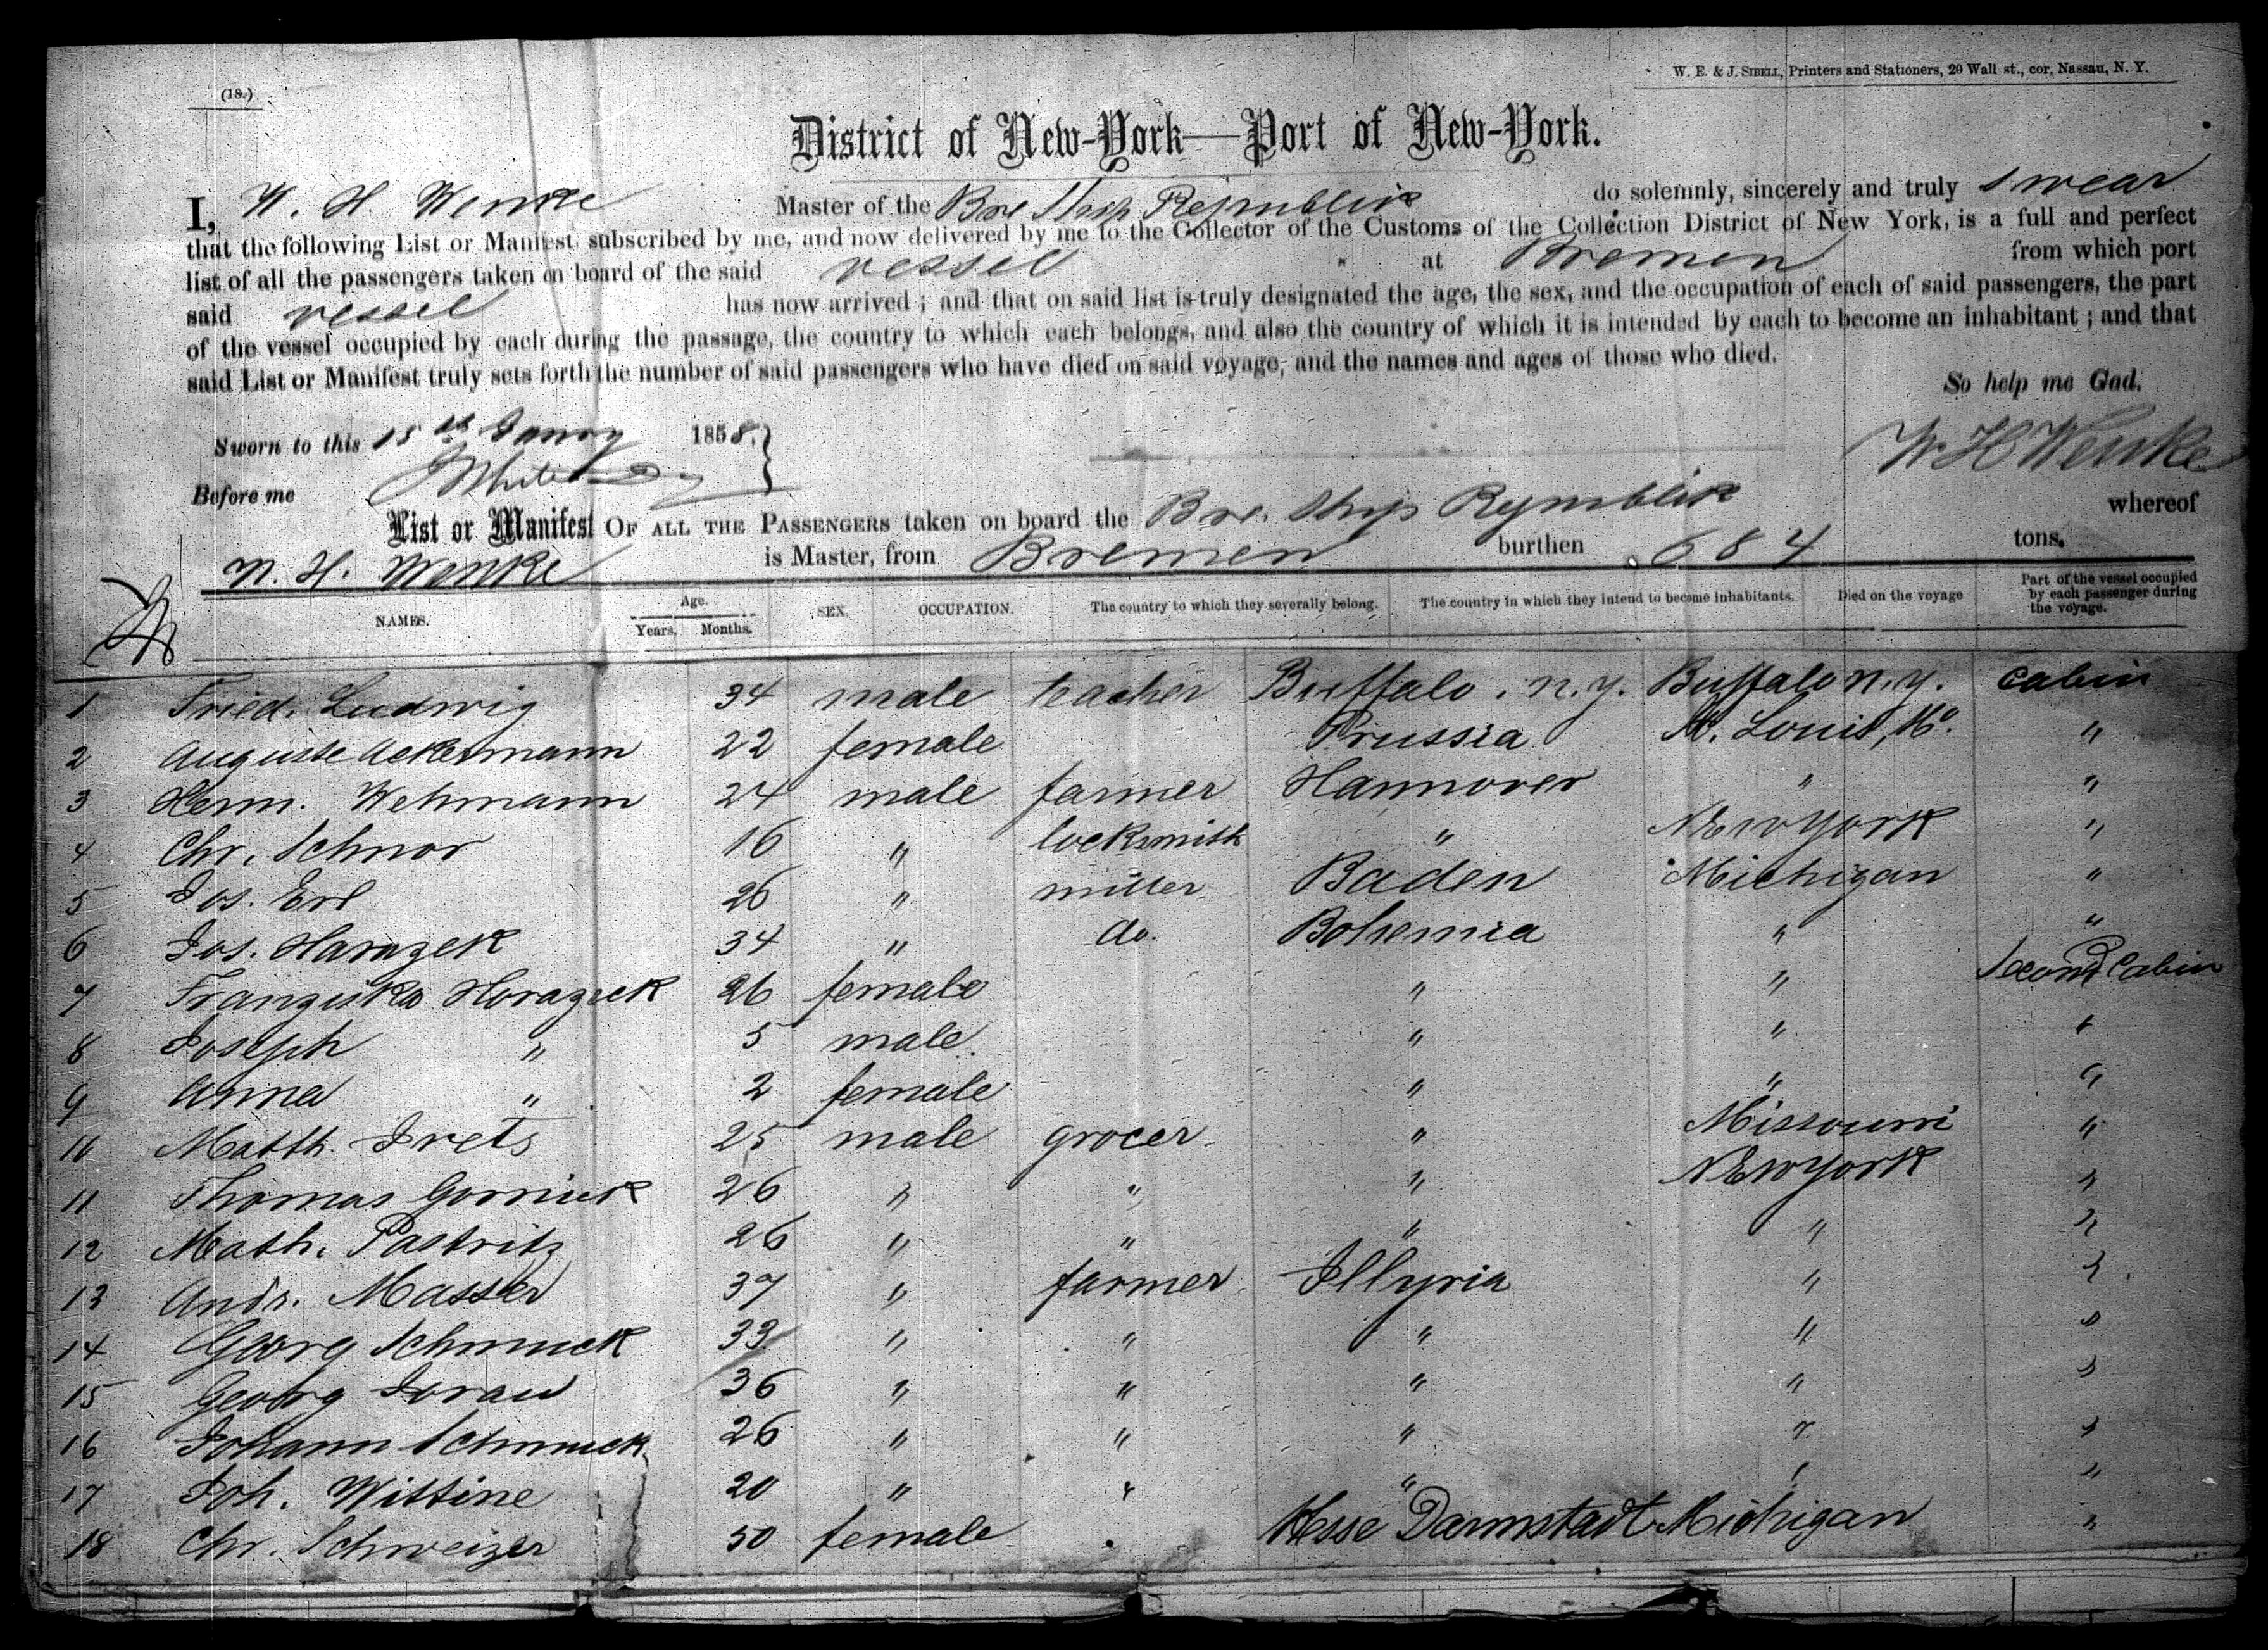 (18.)
W. E. & J. SIBELL, Printers and Stationers, 20 Wall st., cor. Nassau, N. Y.
District of New-York—Port of New-York.
I, W. H. Wenke Master of the Bre Ship Republik do solemnly, sincerely and truly swear
that the following List or Manifest subscribed by me, and now delivered by me to the Collector of the Customs of the Collection District of New York, is a full and perfect
list of all the passengers taken on board of the said vessel at Bremen from which port
said vessel has now arrived ; and that on said list is truly designated the age, the sex, and the occupation of each of said passengers, the part
of the vessel occupied by each during the passage, the country to which each belongs, and also the country of which it is intended by each to become an inhabitant ; and that
said List or Manifest truly sets forth the number of said passengers who have died on said voyage, and the names and ages of those who died.
So help me God.
Sworn to this 15th Janry 1858. }
W H Wenke
Before me
List or Manifest OF ALL THE PASSENGERS taken on board the Bre. Ship Republik whereof
W. H. Wenke is Master, from Bremen burthen 684 tons.
NAMES. Age. Years. Months. SEX. OCCUPATION. The country to which they severally belong. The country in which they intend to become inhabitants. Died on the voyage Part of the vessel occupied by each passenger during the voyage.
1 Fried. Ludwig 34 male teacher Buffalo, N.Y. Buffalo N.Y. Cabin
2 Auguste Ackermann 22 female Prussia St. Louis, Mo. "
3 Herm. Wehmann 24 male farmer Hannover " "
4 Chr. Schnor 16 " locksmith " New York "
5 Jos. Erl 26 " miller Baden Michigan "
6 Jos. Harazek 34 " do. Bohemia " "
7 Franziska Horazek 26 female " " Second Cabin
8 Joseph " 5 male " " "
9 Anna " 2 female " " "
10 Matth. Frets 25 male grocer " Missourri "
11 Thomas Gornick 26 " " " New York "
12 Math. Pastritz 26 " " " " "
13 Andr. Masser 37 " farmer Illyria " "
14 Georg Schmuck 33 " " " " "
15 Georg Joran 36 " " " " "
16 Johann Schmuck 26 " " " " "
17 Joh. Wittine 20 " " " " "
18 Chr. Schweizer 50 female Hesse Darmstadt Michigan "